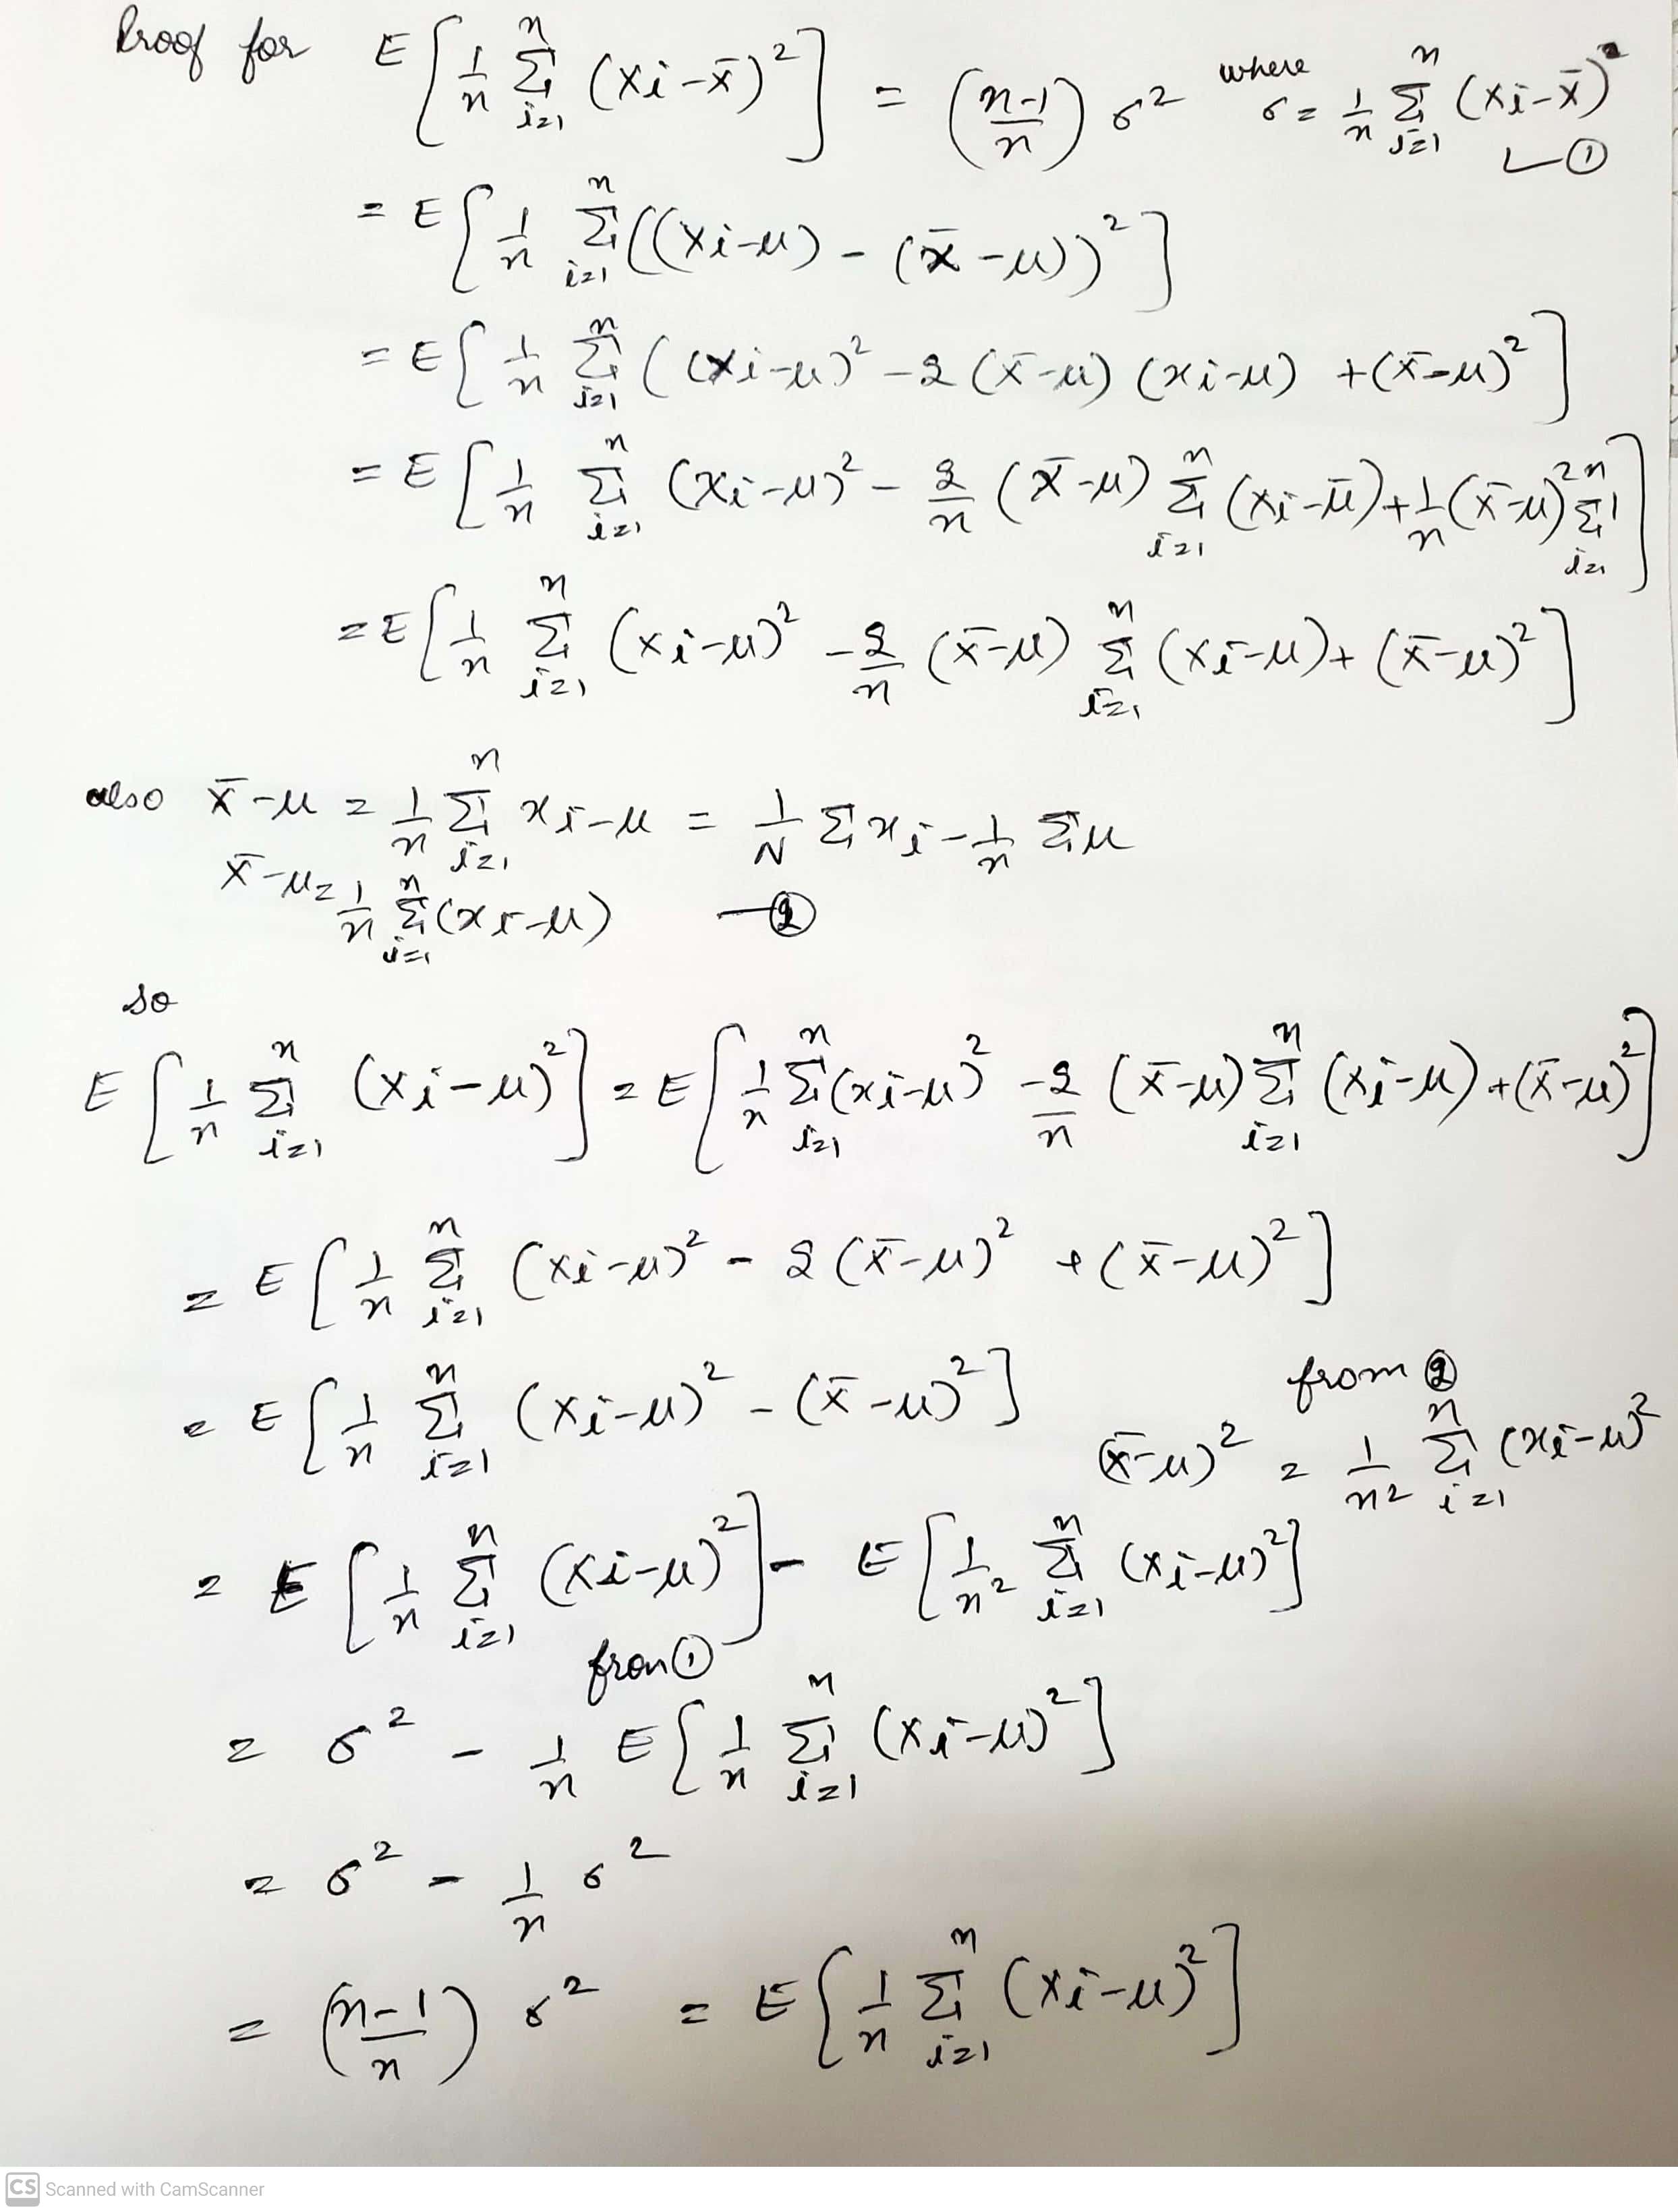 Proof for E[1/n Σ_{i=1}^{n} (Xi-x̄)²] = (n-1/n) σ² where σ = 1/n Σ_{i=1}^{n} (Xi-x̄)² ①
= E[1/n Σ_{i=1}^{n} ((Xi-μ) - (x̄-μ))²]
= E[1/n Σ_{i=1}^{n} ((Xi-μ)² - 2(x̄-μ)(xi-μ) + (x̄-μ)²]
= E[1/n Σ_{i=1}^{n} (xi-μ)² - 2/n (x̄-μ) Σ_{i=1}^{n} (xi-μ̄) + 1/n (x̄-μ)² Σ_{i=1}^{n} 1]
= E[1/n Σ_{i=1}^{n} (xi-μ)² - 2/n (x̄-μ) Σ_{i=1}^{n} (xi-μ) + (x̄-μ)²]
also x̄-μ = 1/n Σ_{i=1}^{n} xi-μ = 1/N Σxi - 1/n Σμ
x̄-μ = 1/n Σ_{i=1}^{n} (xi-μ) —②
so
E[1/n Σ_{i=1}^{n} (xi-μ)²] = E[1/n Σ_{i=1}^{n} (xi-μ)² - 2/n (x̄-μ) Σ_{i=1}^{n} (xi-μ) + (x̄-μ)²]
= E[1/n Σ_{i=1}^{n} (xi-μ)² - 2(x̄-μ)² + (x̄-μ)²]
= E[1/n Σ_{i=1}^{n} (xi-μ)² - (x̄-μ)²]
from ②
(x̄-μ)² = 1/n² Σ_{i=1}^{n} (xi-μ)²
= E[1/n Σ_{i=1}^{n} (xi-μ)²] - E[1/n² Σ_{i=1}^{n} (xi-μ)²]
from ①
= σ² - 1/n E[1/n Σ_{i=1}^{n} (xi-μ)²]
= σ² - 1/n σ²
= (n-1/n) σ² = E[1/n Σ_{i=1}^{n} (xi-μ)²]
CS Scanned with CamScanner